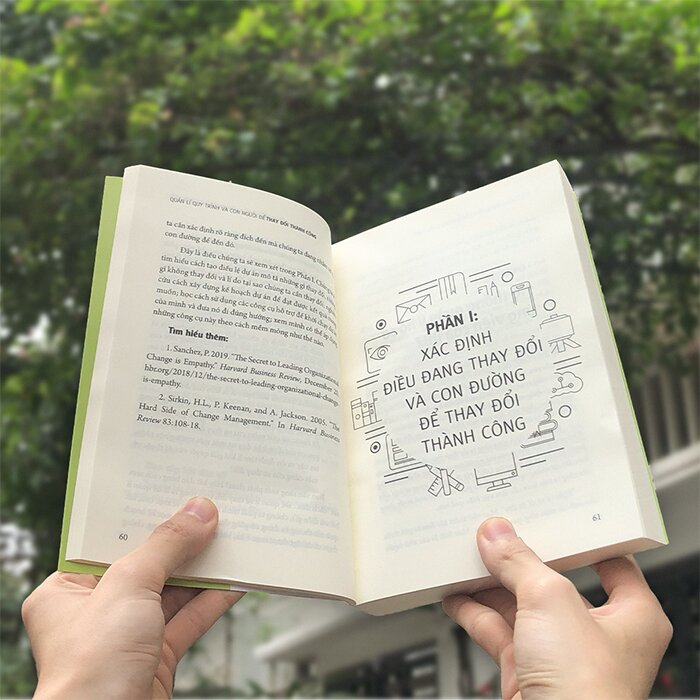 QUẢN LÍ QUY TRÌNH VÀ CON NGƯỜI ĐỂ THAY ĐỔI THÀNH CÔNG
ta cần xác định rõ ràng đích đến mà chúng ta đang
con đường để đến đó.
Đây là điều chúng ta sẽ xem xét trong Phần I. Chúng
tìm hiểu cách tạo điều lệ dự án mô tả những gì thay đổi,
gì không thay đổi và lí do tại sao chúng ta cần thay đổi,
cứu cách xây dựng kế hoạch dự án để đạt được kết quả
muốn; học cách sử dụng các công cụ hỗ trợ để khởi
của mình và đưa nó đi đúng hướng; xem mình có thể
những công cụ này theo cách mềm mỏng như thế nào.
Tìm hiểu thêm:
1. Sanchez, P. 2019. "The Secret to Leading Organizational
Change is Empathy." Harvard Business Review, December
hbr.org/2018/12/the-secret-to-leading-organizational-change-
is-empathy.
2. Sirkin, H.L., P. Keenan, and A. Jackson. 2005. "The
Hard Side of Change Management." In Harvard Business
Review 83:108-18.
60
PHẦN I:
XÁC ĐỊNH
ĐIỀU ĐANG THAY ĐỔI
VÀ CON ĐƯỜNG
ĐỂ THAY ĐỔI
THÀNH CÔNG
61